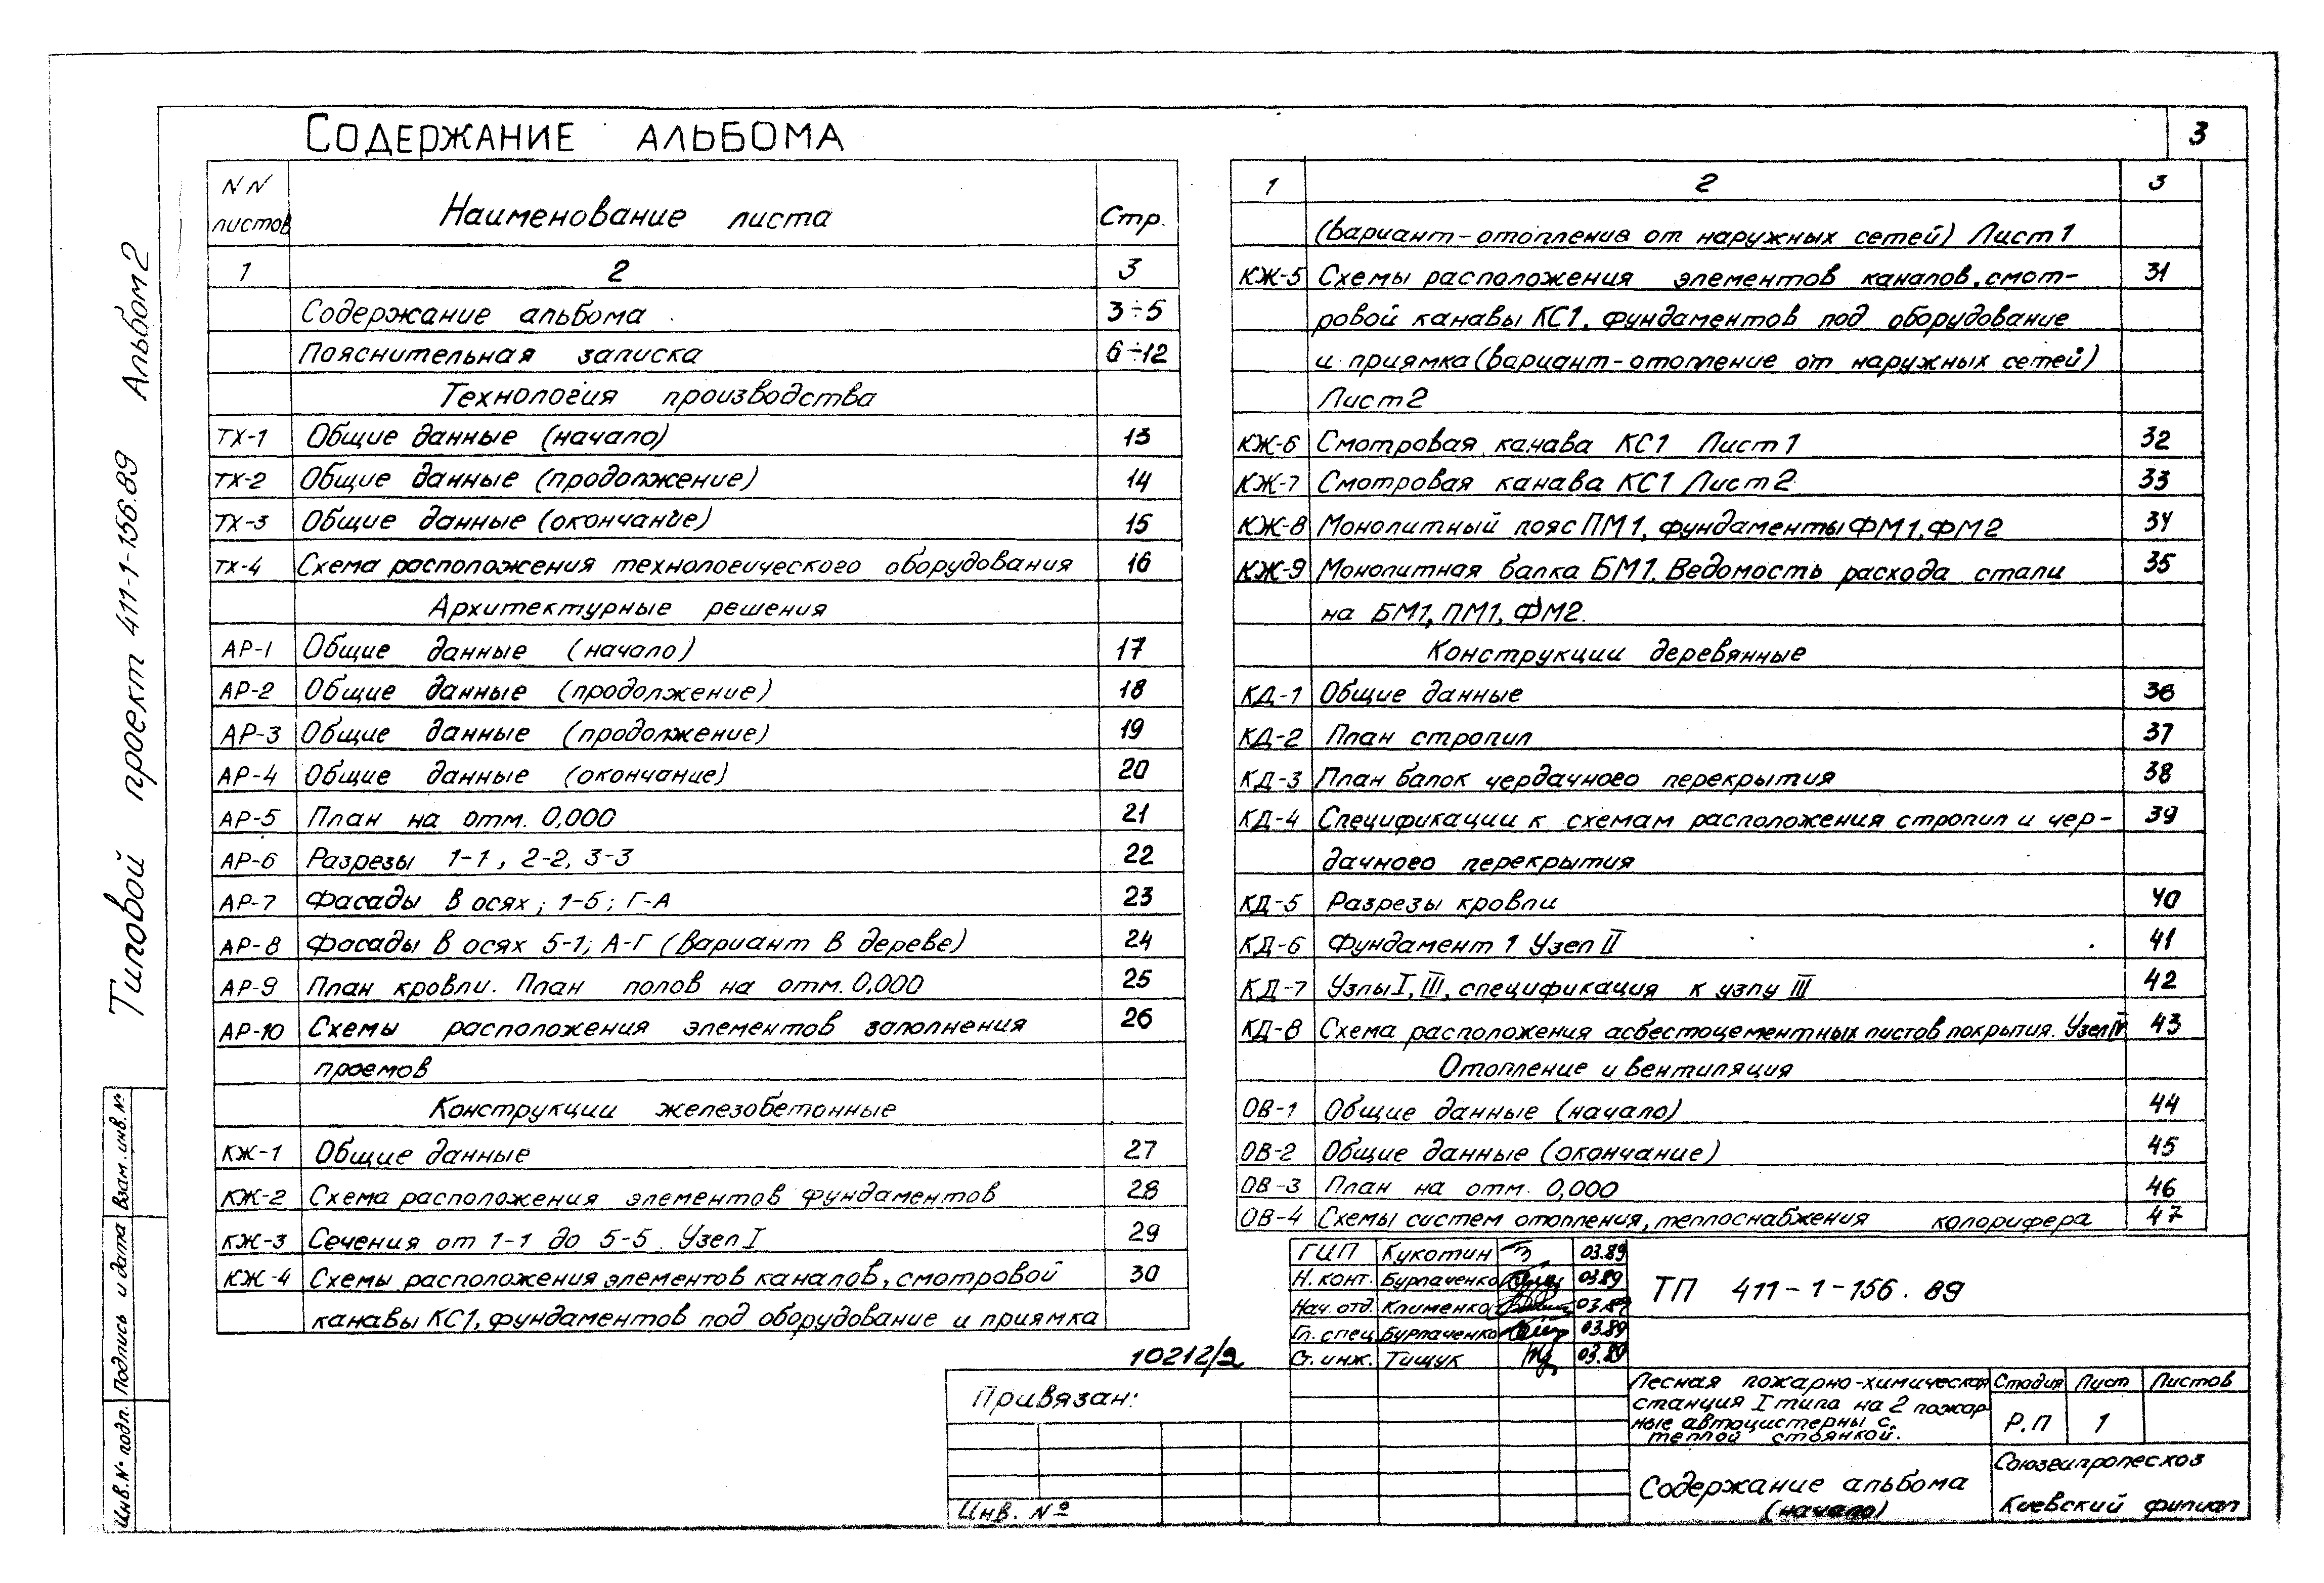 3
Содержание альбома
NN листов Наименование листа Стр.
1 2 3
Содержание альбома 3÷5
Пояснительная записка 6÷12
Технология производства
ТХ-1 Общие данные (начало) 13
ТХ-2 Общие данные (продолжение) 14
ТХ-3 Общие данные (окончание) 15
ТХ-4 Схема расположения технологического оборудования 16
Архитектурные решения
АР-1 Общие данные (начало) 17
АР-2 Общие данные (продолжение) 18
АР-3 Общие данные (продолжение) 19
АР-4 Общие данные (окончание) 20
АР-5 План на отм. 0,000 21
АР-6 Разрезы 1-1, 2-2, 3-3 22
АР-7 Фасады в осях; 1-5; Г-А 23
АР-8 Фасады в осях 5-1; А-Г (вариант в дереве) 24
АР-9 План кровли. План полов на отм. 0,000 25
АР-10 Схемы расположения элементов заполнения 26
проемов
Конструкции железобетонные
КЖ-1 Общие данные 27
КЖ-2 Схема расположения элементов фундаментов 28
КЖ-3 Сечения от 1-1 до 5-5. Узел I 29
КЖ-4 Схемы расположения элементов каналов, смотровой 30
канавы КС1, фундаментов под оборудование и приямка
1 2 3
(вариант-отопления от наружных сетей) Лист 1
КЖ-5 Схемы расположения элементов каналов, смот- 31
ровой канавы КС1, фундаментов под оборудование
и приямка (вариант-отопление от наружных сетей)
Лист 2
КЖ-6 Смотровая канава КС1 Лист 1 32
КЖ-7 Смотровая канава КС1 Лист 2 33
КЖ-8 Монолитный пояс ПМ1, фундаменты ФМ1, ФМ2 34
КЖ-9 Монолитная балка БМ1. Ведомость расхода стали 35
на БМ1, ПМ1, ФМ2.
Конструкции деревянные
КД-1 Общие данные 36
КД-2 План стропил 37
КД-3 План балок чердачного перекрытия 38
КД-4 Спецификации к схемам расположения стропил и чер- 39
дачного перекрытия
КД-5 Разрезы кровли 40
КД-6 Фундамент 1 Узел II 41
КД-7 Узлы I, III, спецификация к узлу III 42
КД-8 Схема расположения асбестоцементных листов покрытия. Узел IV 43
Отопление и вентиляция
ОВ-1 Общие данные (начало) 44
ОВ-2 Общие данные (окончание) 45
ОВ-3 План на отм. 0,000 46
ОВ-4 Схемы систем отопления, теплоснабжения калорифера 47
Типовой проект 411-1-156.89 Альбом 2
Взам. инв. №
Подпись и дата
Инв. № подл.
10212/2
ГИП Кукотин 03.89
Н. конт. Бурлаченко 03.89
Нач. отд. Клименко 03.89
Гл. спец. Бурлаченко 03.89
Ст. инж. Тищук 03.89
ТП 411-1-156.89
Привязан:
Инв. №
Лесная пожарно-химическая
станция I типа на 2 пожар
ные автоцистерны с
теплой стоянкой.
Стадия Лист Листов
Р.П 1
Содержание альбома
(начало)
Союзгипролесхоз
Киевский филиал